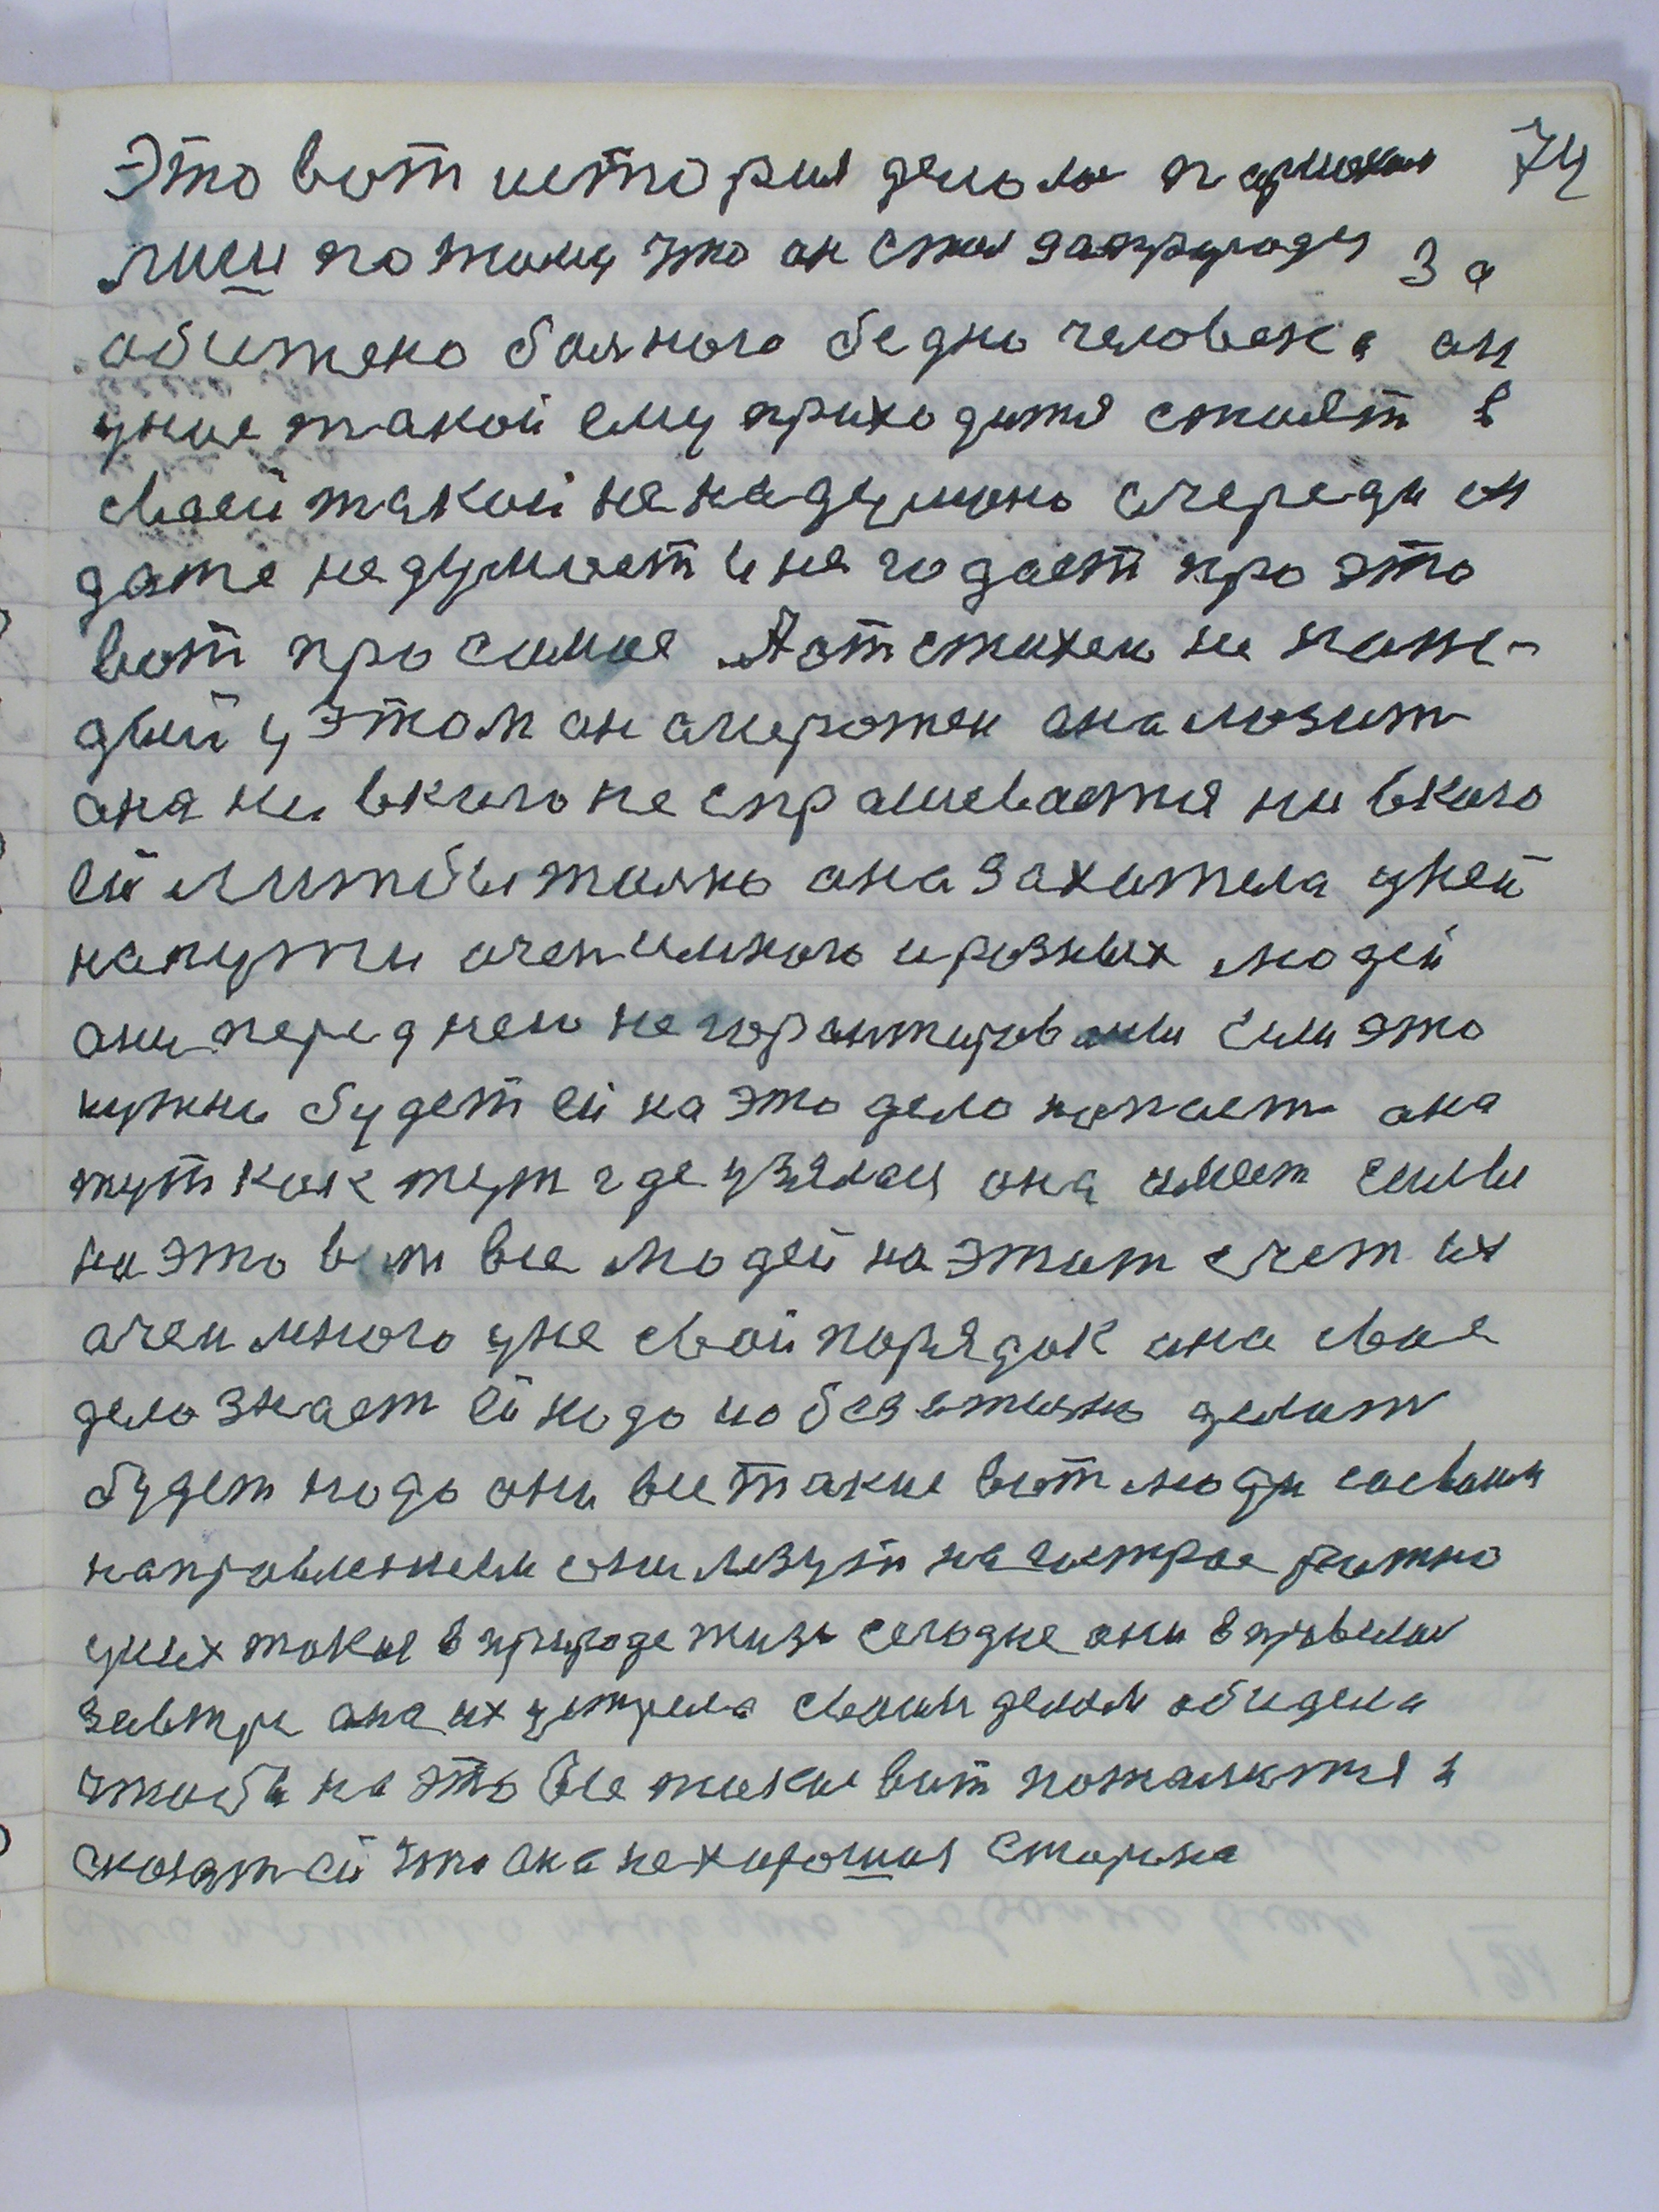 Это вот история делола
74
лиси потому что он стал запрыроду за
обитжено болного бедно человека он
унас такой ему приходится стоят в
своей такой не надумоно очереди он
даже не думает и не годает про это
вот про самое А от стихеи не каж-
дый у этом он омерожен она лозит
она ни вкиго не спрашевается ни вкого
ей лиш бы толко она захотела у ней
на пути очен и много и розных людей
они перед нею не горантированы если это
нужно будет ей на это дело хватает она
тут как тут где узялася она имеет силы
на это вот все людей на этот счет их
очен много у не свой порядок она свае
дело знает ей надо но безетжно делат
будет надо они все такие вот люди сосвоим
направлением они лезут на гострое
у них такая в природе жизь сегодне они в правилах
завтри она их устрела своим делом обидела
чтобы на это все такие вот пожалится и
сказат ей что она не хорошая сторона